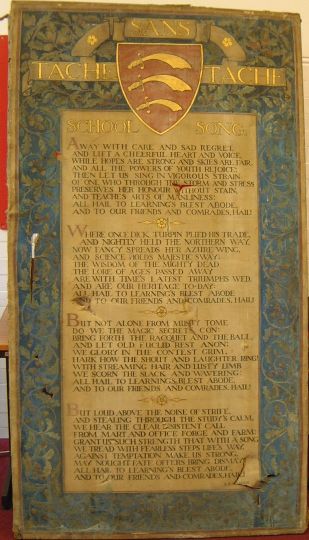 SANS
TACHE TACHE
SCHOOL SONG.
AWAY WITH CARE AND SAD REGRET,
AND LIFT A CHEERFUL HEART AND VOICE,
WHILE HOPES ARE STRONG AND SKIES ARE FAIR,
AND ALL THE POWERS OF YOUTH REJOICE;
THEN LET US SING IN VIGOROUS STRAIN,
OF ONE WHO THROUGH THE STORM AND STRESS
PRESERVES HER HONOUR WITHOUT STAIN,
AND TEACHES ARTS OF MANLINESS:
ALL HAIL TO LEARNING'S BLEST ABODE,
AND TO OUR FRIENDS AND COMRADES, HAIL!
WHERE ONCE DICK TURPIN PLIED HIS TRADE,
AND NIGHTLY HELD THE NORTHERN WAY,
NOW FANCY SPREADS HER AZURE WING,
AND SCIENCE HOLDS MAJESTIC SWAY;
THE WISDOM OF THE MIGHTY DEAD
THE LORE OF AGES PASSED AWAY
ARE WITH TIME'S LATEST TRIUMPHS WED,
AND ARE OUR HERITAGE TO-DAY:
ALL HAIL TO LEARNING'S BLEST ABODE
AND TO OUR FRIENDS AND COMRADES, HAIL!
BUT NOT ALONE FROM MUSTY TOME
DO WE THE MAGIC SECRETS CON:
BRING FORTH THE RACQUET AND THE BALL,
AND LET OLD EUCLID REST ANON:
WE GLORY IN THE CONTEST GRIM,
HARK HOW THE SHOUT AND LAUGHTER RING!
WITH STREAMING HAIR AND LUSTY LIMB
WE SCORN THE SLACK AND WAVERING:
ALL HAIL TO LEARNING'S BLEST ABODE,
AND TO OUR FRIENDS AND COMRADES, HAIL!
BUT LOUD ABOVE THE NOISE OF STRIFE,
AND STEALING THROUGH THE STUDY'S CALM,
WE HEAR THE CLEAR INSISTENT CALL
FROM MART AND OFFICE FORGE AND FARM:
GRANT US SUCH STRENGTH THAT WITH A SONG
WE TREAD WITH FEARLESS STEPS LIFE'S WAY,
AGAINST TEMPTATION MAKE US STRONG,
MAY NOUGHT FATE OFFERS BRING DISMAY
ALL HAIL TO LEARNING'S BLEST ABODE,
AND TO OUR FRIENDS AND COMRADES, HAIL!